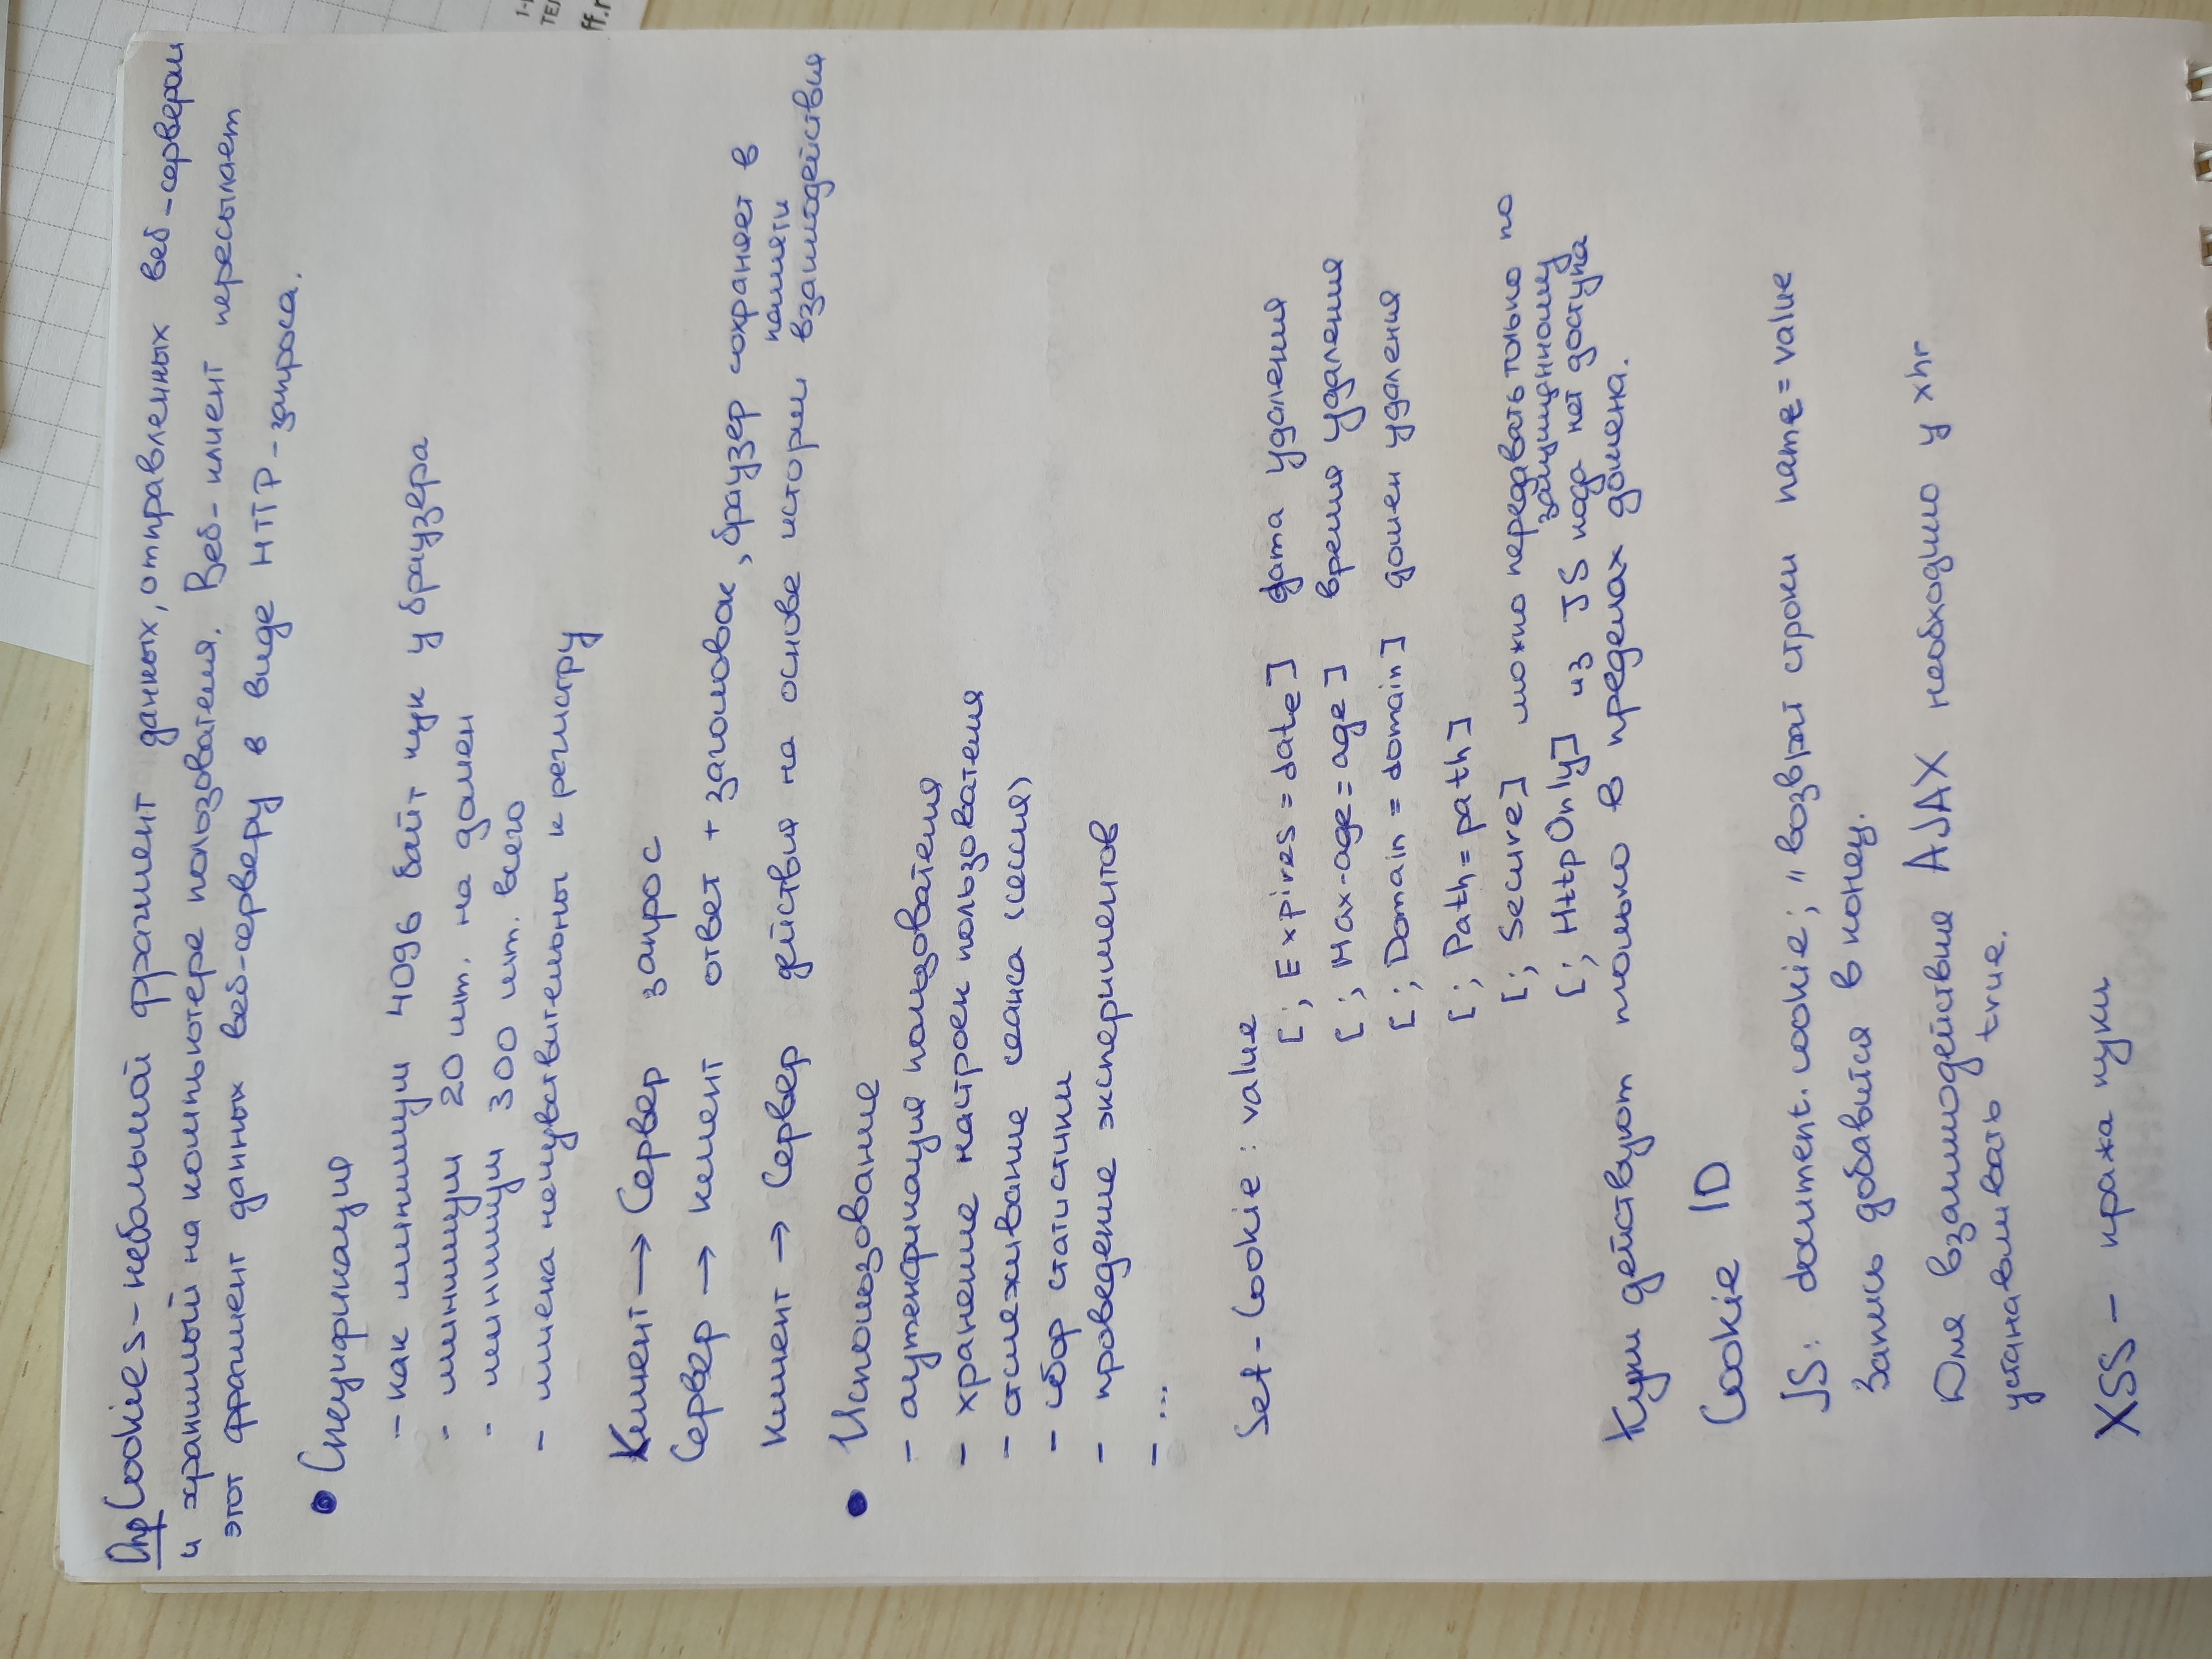 Опр Cookies - небольшой фрагмент данных, отправленных веб-сервером
и хранимый на компьютере пользователя. Веб-клиент пересылает
этот фрагмент данных веб-серверу в виде HTTP-запроса.
• Спецификация
- как минимум 4096 байт кук у браузера
- минимум 20 шт. на домен
- минимум 300 шт. всего
- имена нечувствительны к регистру
Клиент → Сервер запрос
Сервер → клиент ответ + заголовок, браузер сохраняет в
памяти
Клиент → Сервер действия на основе истории взаимодействия
• Использование
- аутенфикация пользователя
- хранение настроек пользователя
- отслеживание сеанса (сессия)
- сбор статистики
- проведение экспериментов
- ...
Set-Cookie : value
[ ; Expires = date] дата удаления
[ ; Max-age = age] время удаления
[ ; Domain = domain] домен удаления
[ ; Path = path]
[ ; Secure] можно передавать только по
защищенному
[ ; HttpOnly] из JS кода нет доступа
Куки действуют только в пределах домена.
Cookie ID
JS: document.cookie; // возврат строки name = value
Запись добавится в конец.
Для взаимодействия AJAX необходимо у xhr
устанавливать true.
XSS - кража куки